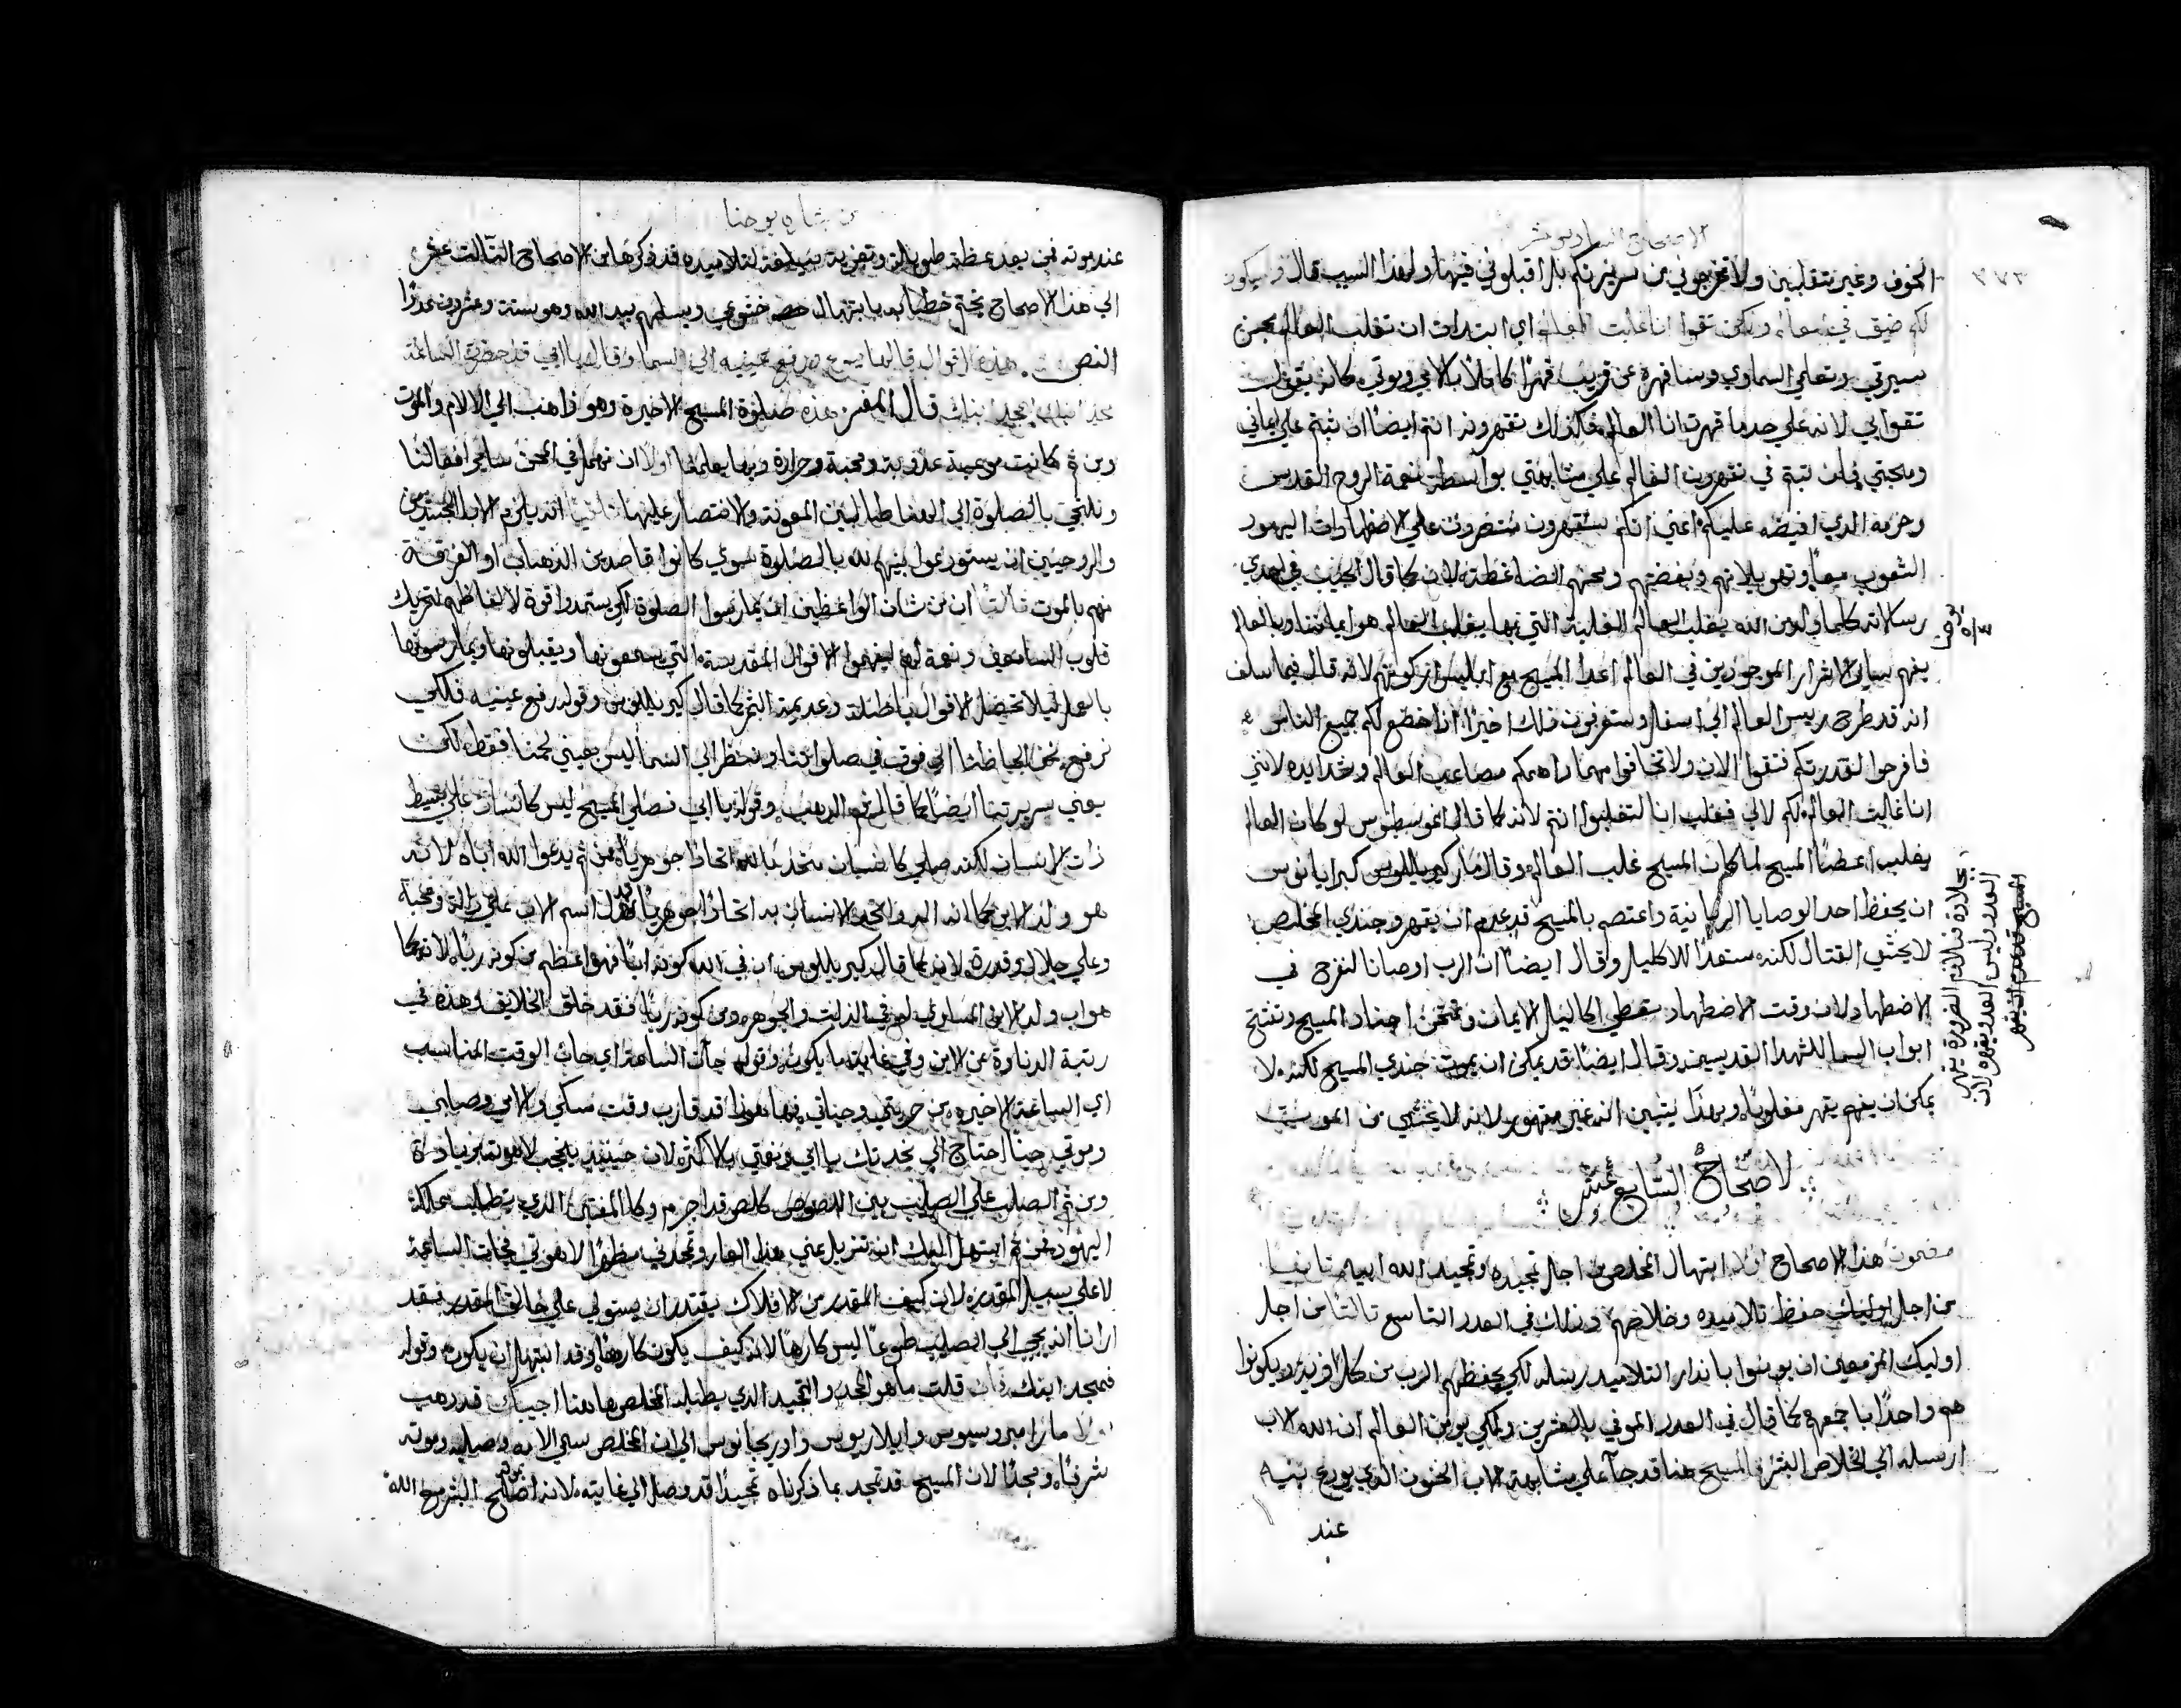 الاصحاح السادس عشر
٣٧٣
الخوف وغير متقلبين ولا تخرجوني من سريرتكم بل اقبلوني فيها ولهذا السبب قال وسيكون
لكم ضيق في العالم ولكن ثقوا انا غلبت العالم اي ابتدات ان تغلب العالم بحسن
سيرتي وتعلمي السماوي وساقهره عن قريب قهرًا كاملًا بالامي وموتي كانه يقول
ثقوا بي لانه علي حد ما قهرت انا العالم فكذلك تقهرونه انتم ايضًا ان ثبتم علي ايماني
ومحبتي فان ثبتم في تقهرون العالم علي مشابهتي بواسطة نعمة الروح القدس
وحزمه الذي افيضه عليكم اعني انكم ستقهرون منتصرون علي اضطهادات اليهود
الشعوب جميعًا وتهويلاتهم وبغضتهم ومحنهم الضاغطة لان كما قال الحبيب في احدي
رسالاته كلما ولد من الله يغلب العالم الغلبة التي بها يغلب العالم هو ايماننا وبالعالم
يفهم ساير الاشرار الموجودين في العالم اعدا المسيح مع ابليس اركونهم لانه قال فيما سلف
انه قد طرح رييس العالم الي اسفل وستعرفون ذلك اخيرًا اذا خضع لكم جميع الناس
فافرحوا لقدرتكم فثقوا الان ولا تخافوا مهما داهمكم مصاعب العالم وشدايده لانني
انا غالبت العالم لكم لا لي فغلبت انا لتغلبوا انتم لانه كما قال اغوسطينوس لو كان العالم
يغلب اعضا المسيح لما كان المسيح غلب العالم وقال مار كيريللوس كبريانوس
ان يحفظ احد الوصايا الربانية واعتصم بالمسيح قد عدم ان يقهر وجندي المخلص
لا يخشي القتال لكنه مستعدًا للاكليل وقال ايضًا ان الرب اوصانا لنفرح في
الاضطهاد لان وقت الاضطهاد تعطي اكاليل الايمان وتمتحن اجناد المسيح وتنفتح
ابواب السما للشهدا القديسين وقال ايضًا قد يمكن ان يموت جندي المسيح لكنه لا
يمكن ان يقهر مغلوبًا وبهذا يتبين انه غير مقهور لانه لا يخشي من الموت
الاصحاح السابع عشر
مضمون هذا الاصحاح اولا ابتهال المخلص من اجل تمجيده وتمجيد الله ابيه ثانيًا
من اجل اوليك حفظ تلاميذه وخلاصهم وذلك في العدد التاسع ثالثًا من اجل
اوليك المزمعين ان يومنوا بانذار التلاميذ رسله لكي يحفظهم الرب من كل اذية ويكونوا
هم واحدًا باجمعهم كما قال في العدد الموفي بالعشرين ولكي يومن العالم ان الله الاب
ارسله الي خلاص البشر فالمسيح هنا قد جا علي مشابهة الاب الحنون الذي يودع بنيه
عند
من بشارة يوحنا
عند موته فمن بعد عظة طويلة وتعزية بليغة لتلاميذه قد ذكرها من الاصحاح الثالث عشر
الي هذا الاصحاح يختم خطابه بابتهال خشوعي ويسلمهم بيد الله وهو ستة وعشرون عددًا
النص هذه الاقوال قالها يسوع ورفع عينيه الي السما وقال يا ابي قد حضرت الساعة
مجد ابنك ليمجد ابنك قال المفسر هذه صلوة المسيح الاخيرة وهو ذاهب الي الالام والموت
ومن ثم كانت موعبة عذوبة ومحبة وحرارة وبها يعلمنا اولًا ان نهمل في المحن ساير افعالنا
ونلتجي بالصلوة الي الله طالبين المعونة والانتصار عليها ثانيًا انه يلزم الابا الجسديين
والروحيين ان يستودعوا بنيهم لله بالصلوة سوي كانوا قاصدين الذهاب او الفرقة
منهم بالموت ثالثًا ان من شان الواعظين ان يمارسوا الصلوة لكي يستمدوا قوة لالفاظهم لتحريك
قلوب السامعين ونعمة لهم ليفهموا الاقوال المقدسة التي يسمعونها ويقبلونها ويمارسونها
بالعمل ليلا تحصل الاقوال باطلة وعديمة الثمر كما قال كيريللوس وقوله رفع عينيه فلكي
نرفع نحن الحاظنا الي فوق في صلواتنا وننظر الي السما ليس بعيني لحمنا فقط لكن
بعيني سريرتنا ايضًا كما قال فم الذهب وقوله يا ابي فصلي المسيح ليس كانسان علي بسيط
ذات الانسان لكنه صلي كانسان متحد بالله اتحادًا جوهريًا من ثم يدعوا الله اباه لانه
هو ولد الابن كما انه اله واتحد الانسان به اتحادًا جوهريًا يدل اسم الاب علي دالة ومحبة
وعلي جلال وقدرة لانه كما قال كيريللوس ان في الله كونه ابًا فهو اعظم من كونه ربًا لانه كما
هو اب ولد الابن المساوي له في الذات والجوهر ومن كونه ربًا فقد خلق الخلايق وهذه في
رتبة الدناوة عن الابن وفي غاية ما يكون وقوله جات الساعة اي حان الوقت المناسب
اي الساعة الاخيرة من حريتي وحياتي فها هوذا قد قارب وقت مسكي والامي وصلبي
وموتي حينًا احتاج الي نجدتك يا ابي ونعمتي بالاكثر لان حينيذ يحجب لاهوته بزيادة
ومن ثم اصلب علي الصليب بين اللصوص كلص قد اجرم وكالمفتن الذي يطلب مملكة
اليهود فمن ثم ابتهل اليك ان تزيل عني هذا العار وتمجدني مظهرًا لاهوتي فجات الساعة
لا علي سبيل المقدرة لان كيف المقدر من الافلاك يقتدر ان يستولي علي خالق المقدر فقد
ارانا انه يجي الي الصليب طوعًا ليس كارهًا لانه كيف يكون كارهًا وقد ابتهل ان يكون وقوله
فمجد ابنك فان قلت ما هو المجد والتمجيد الذي يطلبه المخلص هاهنا اجيبك قد ذهب
اولا مار امبروسيوس وايلاريوس واوريجانوس الي ان المخلص سمي الامه وصلبه وموته
شرفًا ومجدًا لان المسيح قد تمجد بما ذكرناه تمجيدًا قد وصل الي غايته لانه اصلح البشر مع الله